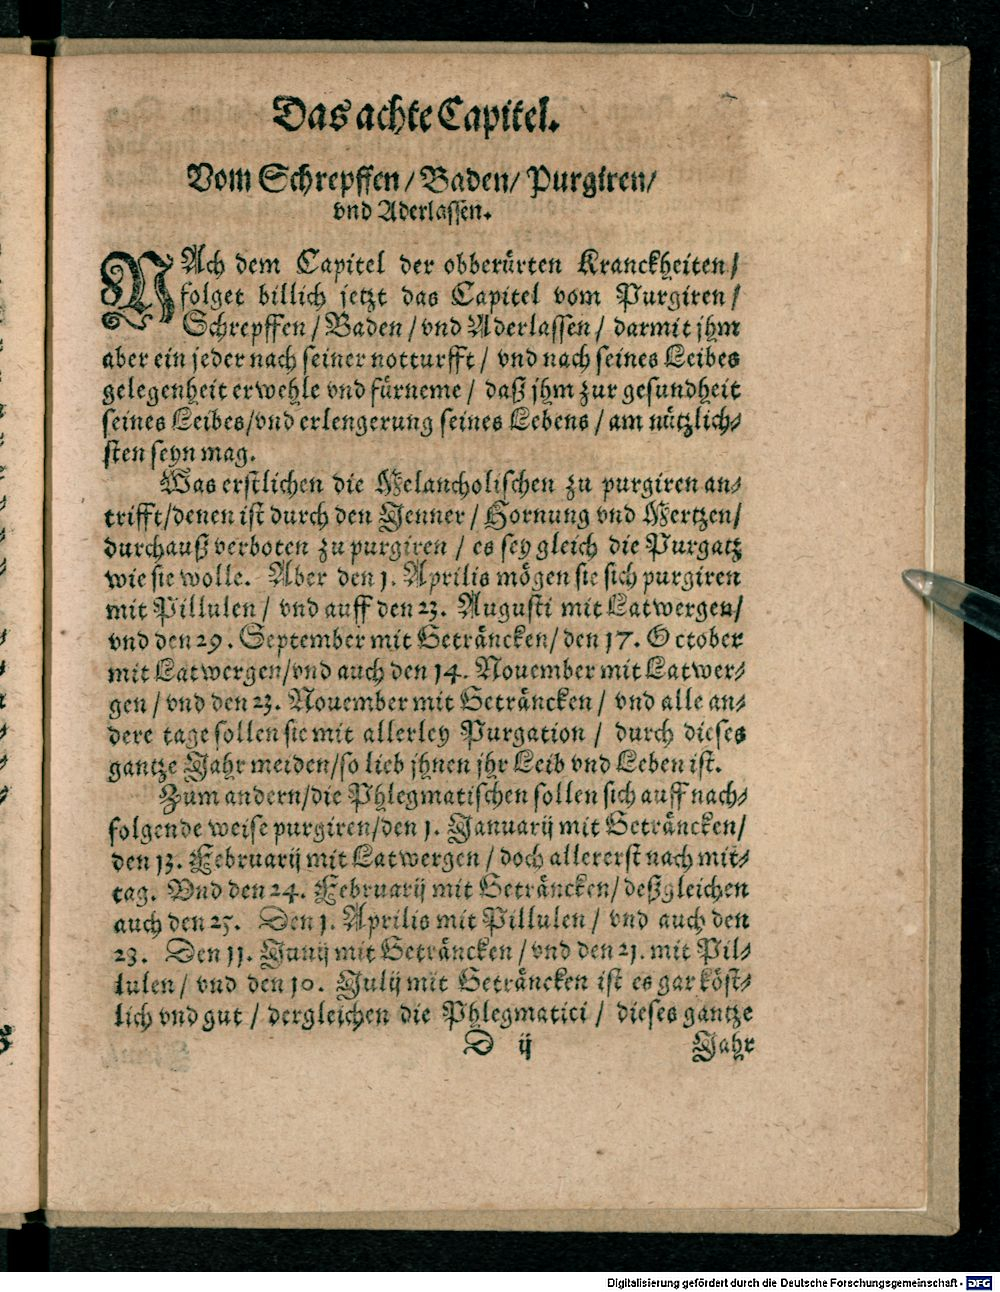 Das achte Capitel.
Vom Schrepffen/ Baden/ Purgiren/
vnd Aderlassen.
NAch dem Capitel der obberürten Kranckheiten/
folget billich jetzt das Capitel vom Purgiren/
Schrepffen/ Baden/ vnd Aderlassen/ darmit jhm
aber ein jeder nach seiner notturfft/ vnd nach seines Leibes
gelegenheit erwehle vnd fürneme/ daß jhm zur gesundheit
seines Leibes/ vnd erlengerung seines Lebens/ am nützlich⸗
sten seyn mag.
Was erstlichen die Melancholischen zu purgiren an⸗
trifft/ denen ist durch den Jenner/ Hornung vnd Mertzen/
durchauß verboten zu purgiren/ es sey gleich die Purgatz
wie sie wolle. Aber den 1. Aprilis mögen sie sich purgiren
mit Pillulen/ vnd auff den 23. Augusti mit Latwergen/
vnd den 29. September mit Geträncken/ den 17. October
mit Latwergen/ vnd auch den 14. Nouember mit Latwer⸗
gen/ vnd den 23. Nouember mit Geträncken/ vnd alle an⸗
dere tage sollen sie mit allerley Purgation/ durch dieses
gantze Jahr meiden/ so lieb jhnen jhr Leib vnd Leben ist.
Zum andern/ die Phlegmatischen sollen sich auff nach⸗
folgende weise purgiren/ den 1. Januarij mit Geträncken/
den 13. Februarij mit Latwergen/ doch allererst nach mit⸗
tag. Vnd den 24. Februarij mit Geträncken/ deßgleichen
auch den 25. Den 1. Aprilis mit Pillulen/ vnd auch den
23. Den 11. Junij mit Geträncken/ vnd den 21. mit Pil⸗
lulen/ vnd den 10. Julij mit Geträncken ist es gar köst⸗
lich vnd gut/ dergleichen die Phlegmatici/ dieses gantze
D ij Jahr
Digitalisierung gefördert durch die Deutsche Forschungsgemeinschaft - DFG